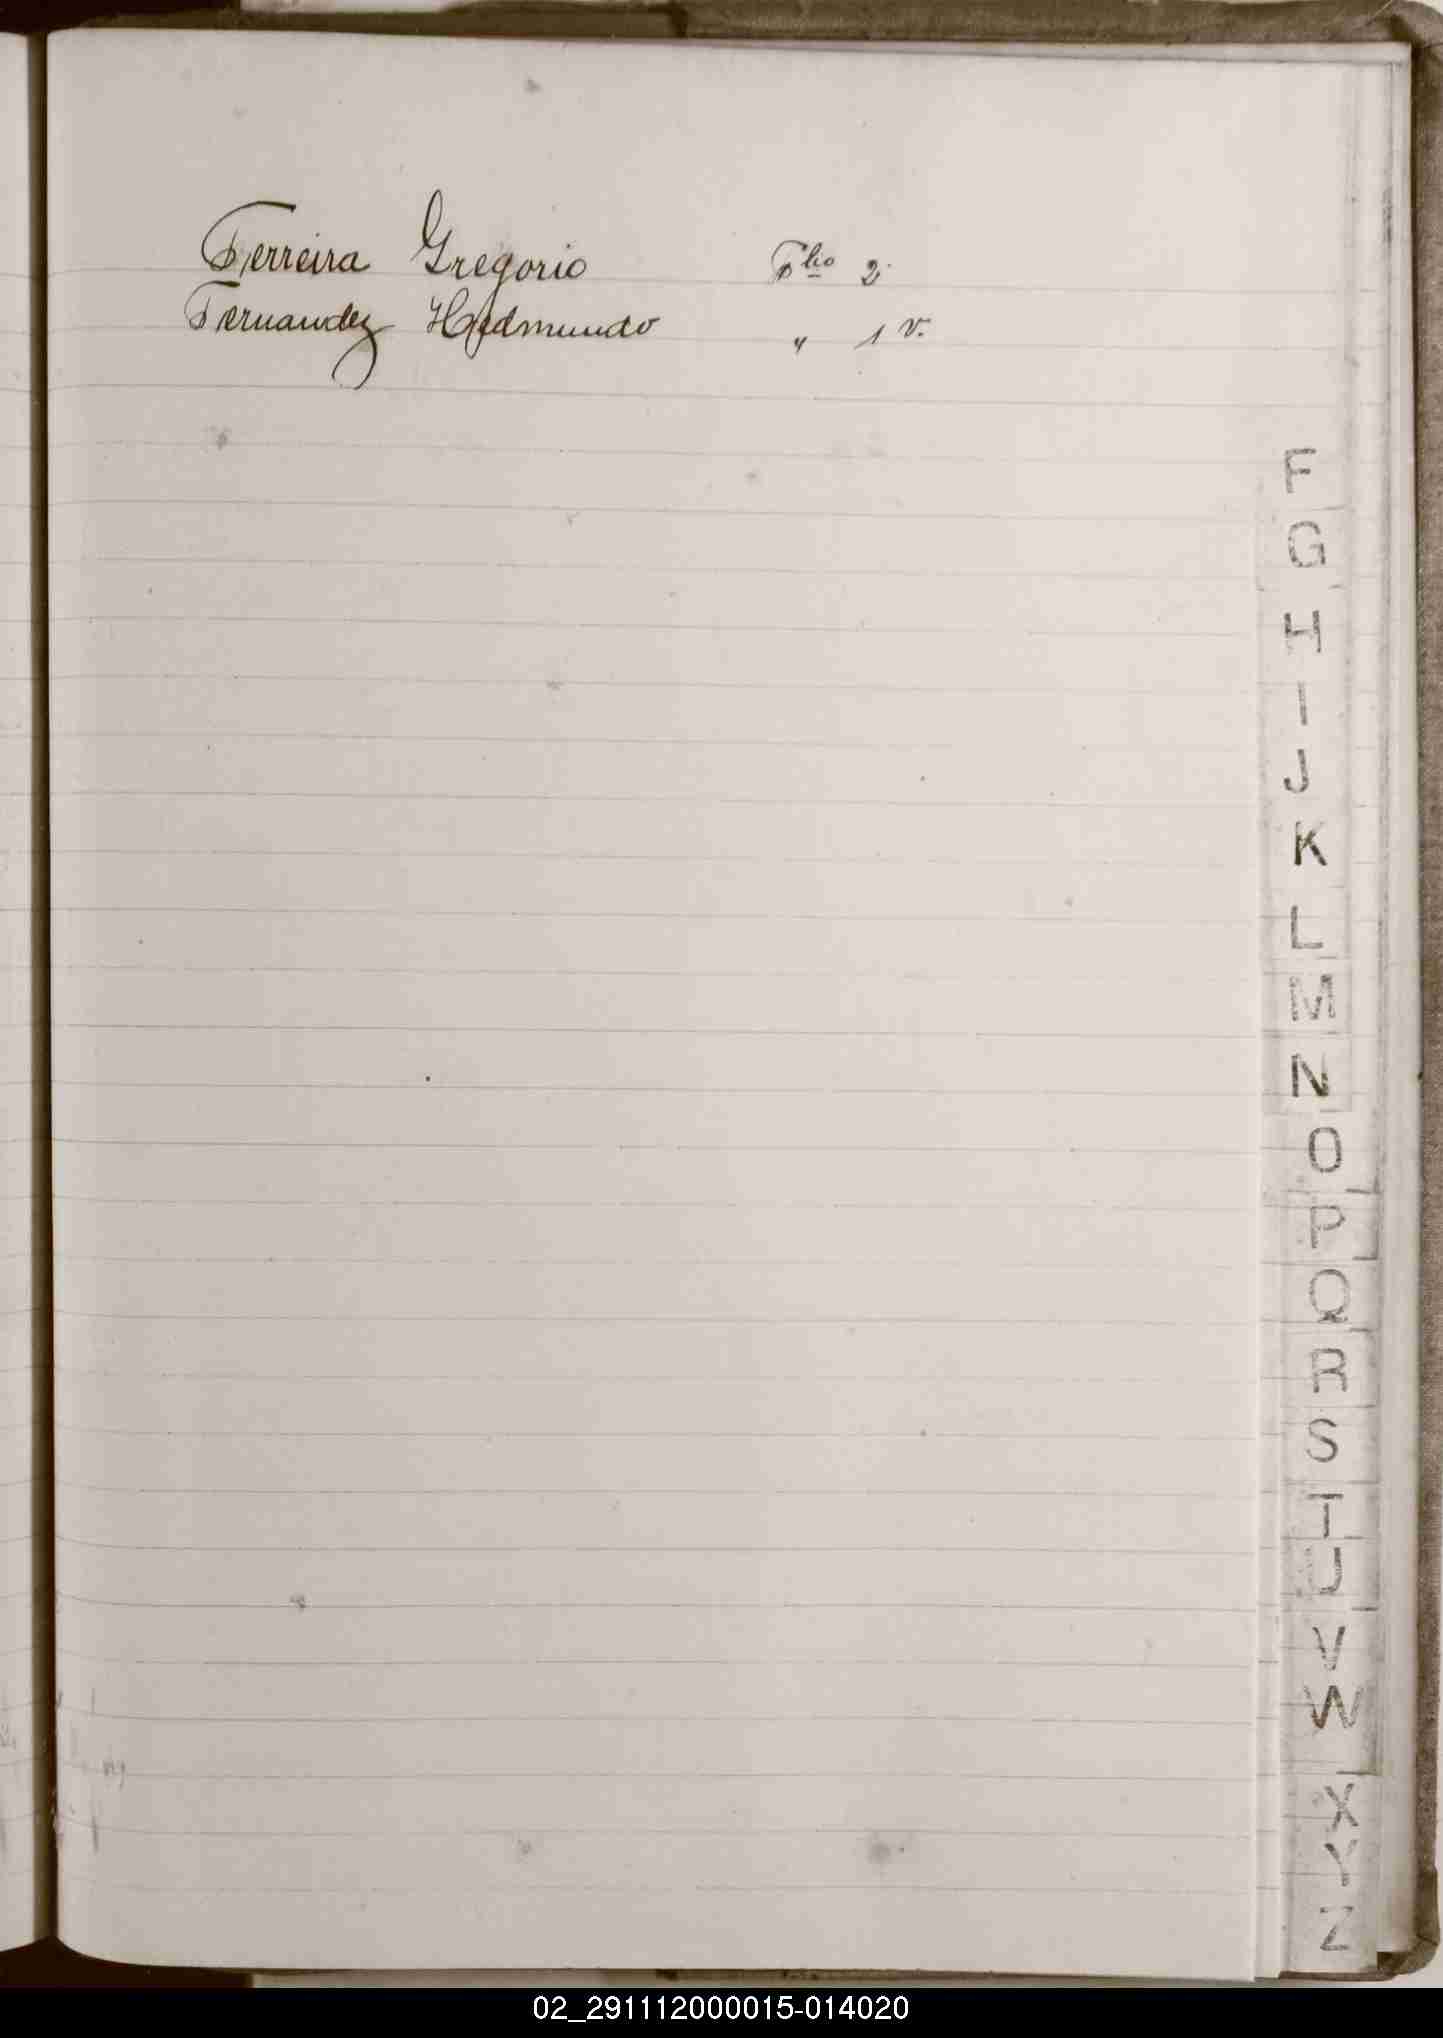 Ferreira Gregorio Flio 2
Fernandez Hedmundo " 1 v.
F
G
H
I
J
K
L
M
N
O
P
Q
R
S
T
U
V
W
X
Y
Z
02_291112000015-014020